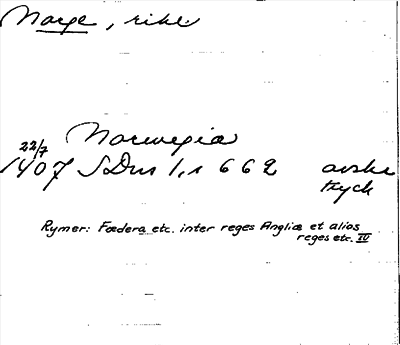 Norge, rike
Norwegia
22/7
1407 SDns 1, s 662 avskr
tryck
Rymer: Fœdera etc. inter reges Angliæ et alios
reges etc. IV